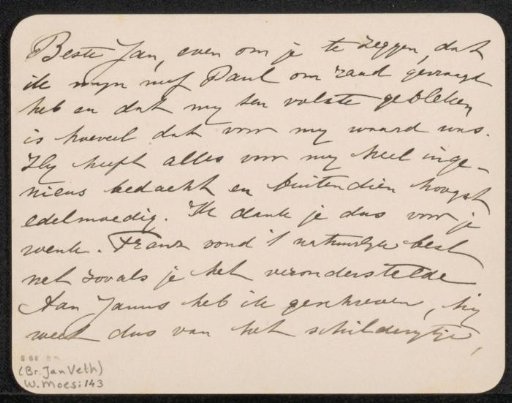 Beste Jan, even om je te zeggen, dat
ik mijn neef Paul om raad gevraagd
heb en dat mij ten volste gebleken
is hoeveel dat voor mij waard was.
Hij heeft alles voor mij heel inge-
nieus bedacht en buitendien hoogst
edelmoedig. Ik dank je dus voor je
wenk. Franz vond 't natuurlijk best
net zooals je het veronderstelde
Aan Janus heb ik geschreven, hij
weet dus van het schilderijtje,
(Br. Jan Veth)
W. Moes: 143